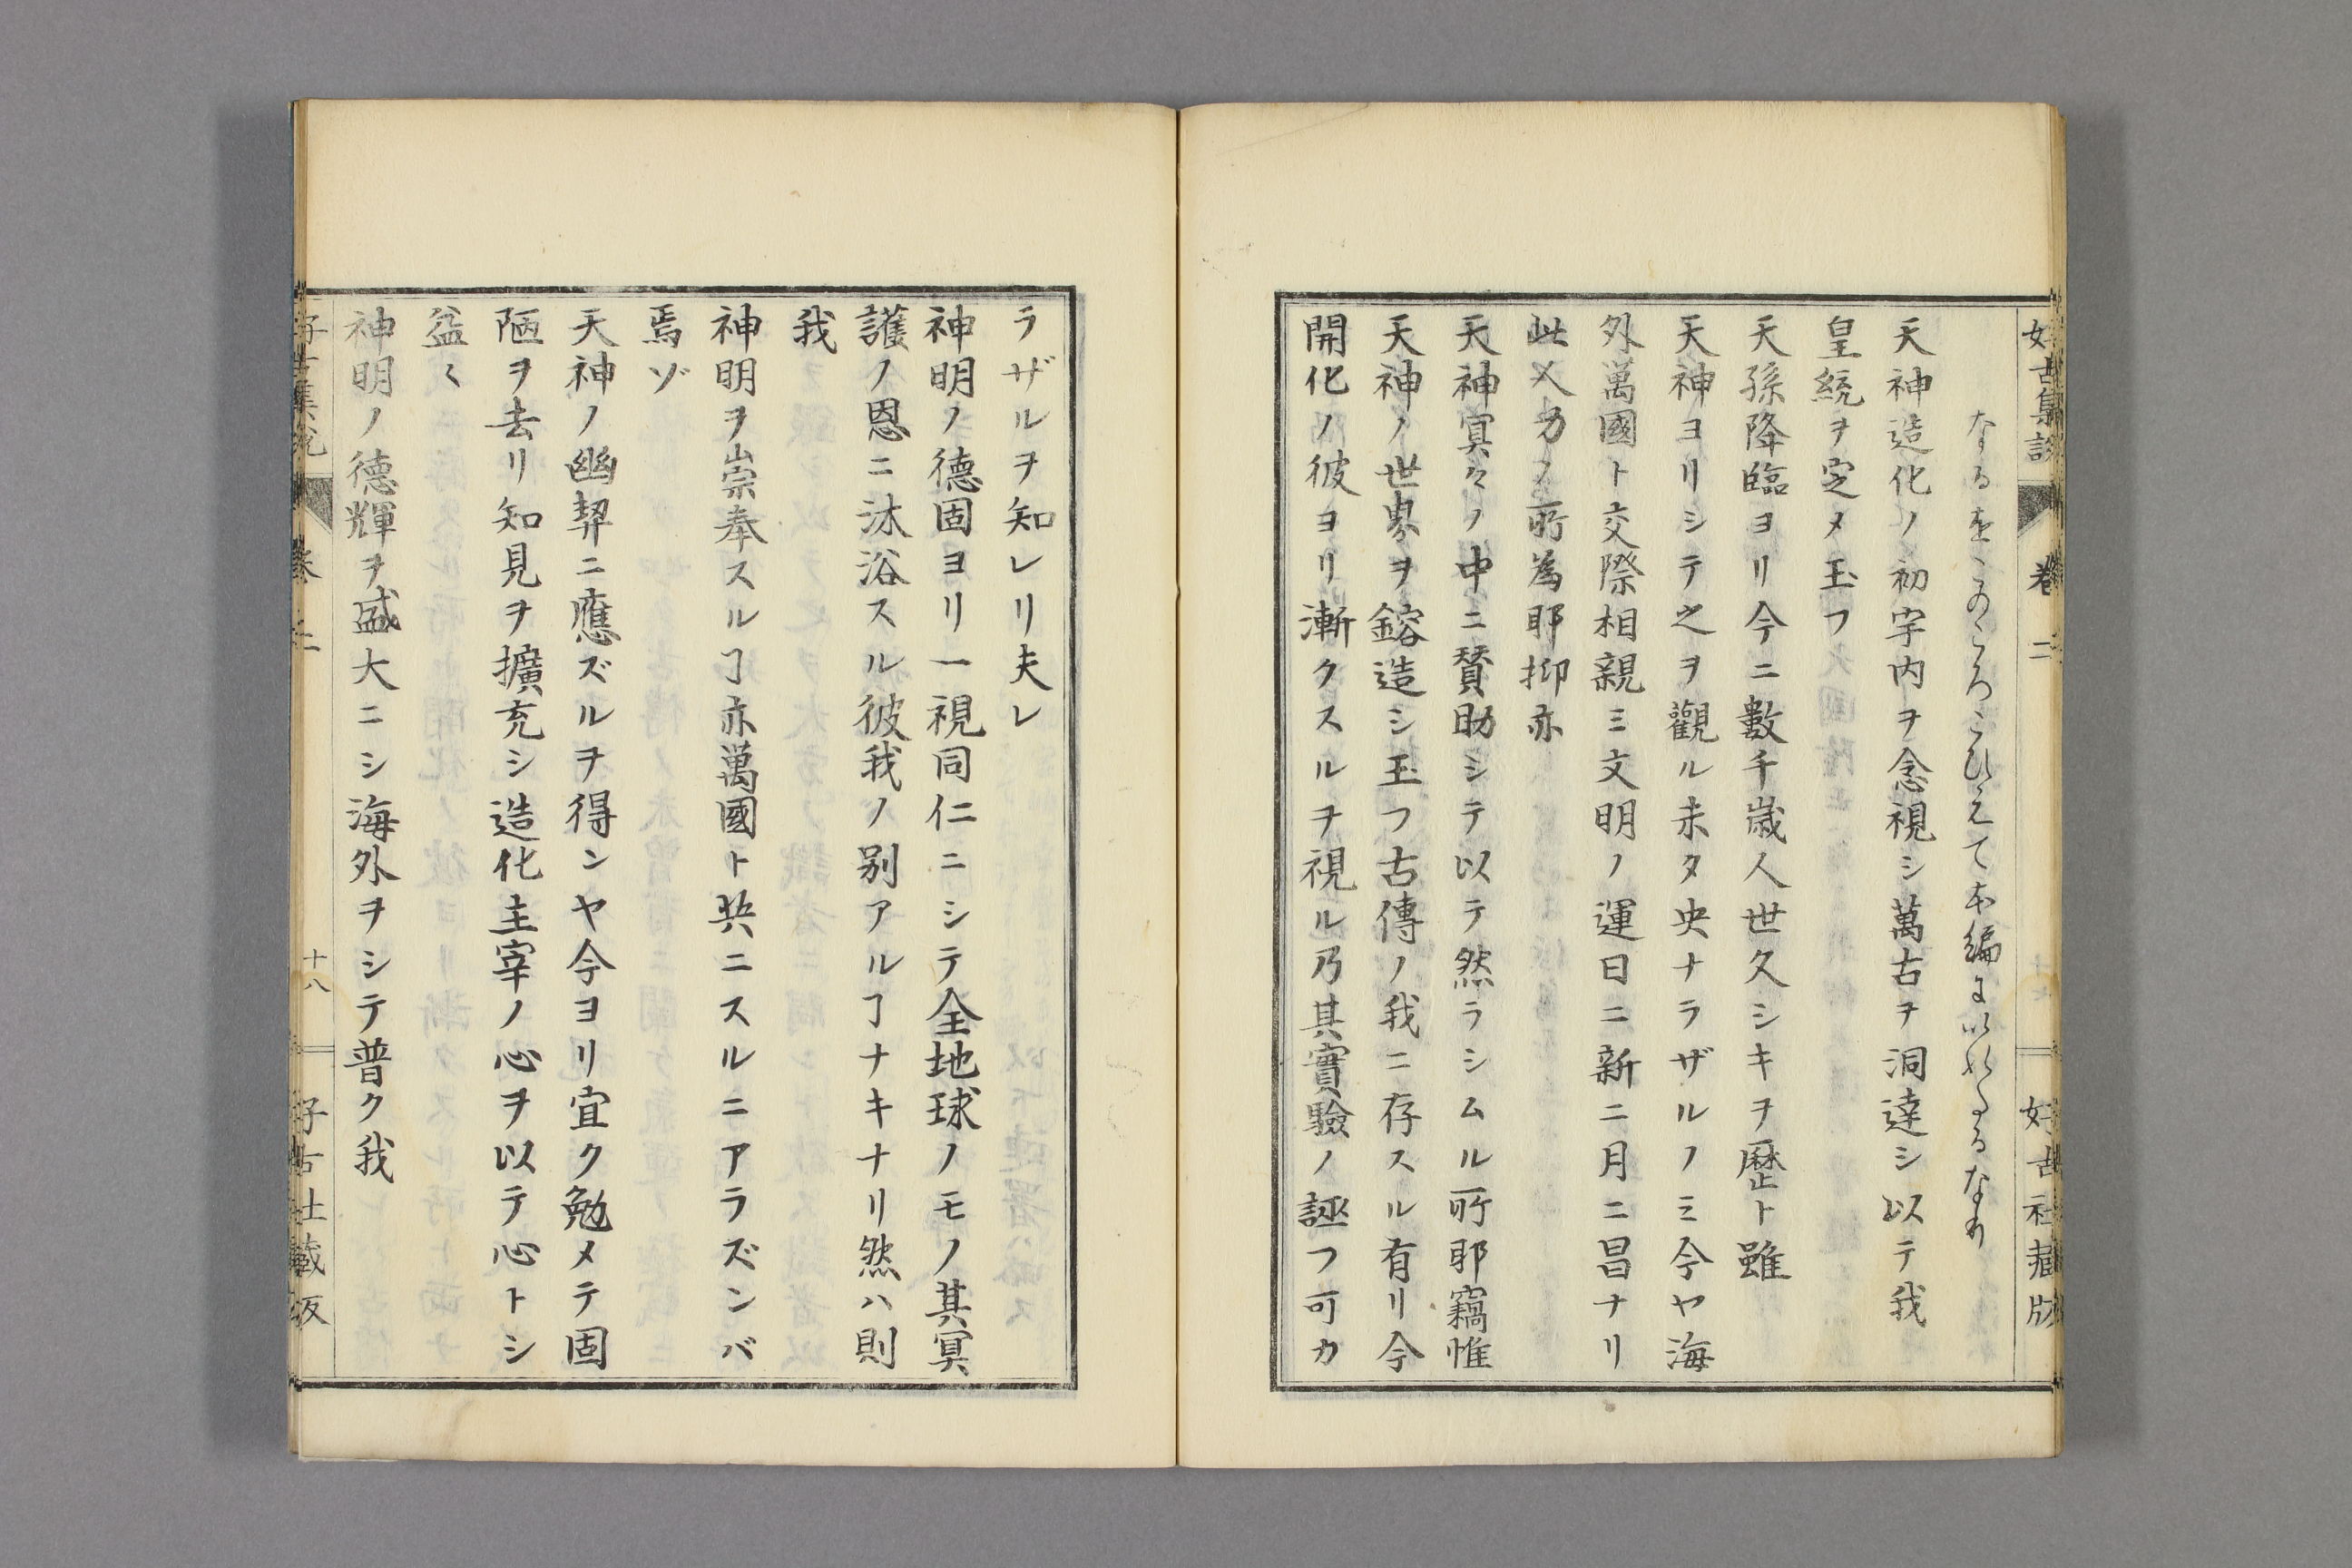 好古集説 巻二 好古社蔵版
なるをこのころこひえて本編にいれたるなり
天神造化ノ初宇内ヲ念視シ萬古ヲ洞達シ以テ我
皇統ヲ定メ玉フ
天孫降臨ヨリ今ニ數千歳人世久シキヲ歴ト雖
天神ヨリシテ之ヲ觀ル未タ央ナラザルノミ今ヤ海
外萬國ト交際相親ミ文明ノ運日ニ新ニ月ニ昌ナリ
此乂力ノ所為耶抑亦
天神冥々ノ中ニ賛助シテ以テ然ラシムル所耶竊惟
天神ノ世界ヲ鎔造シ玉フ古傳ノ我ニ存スル有リ今
開化ノ彼ヨリ漸クスルヲ視ル乃其實驗ノ誣フ可カ
ラザルヲ知レリ夫レ
神明ノ德固ヨリ一視同仁ニシテ全地球ノモノ其冥
護ノ恩ニ沐浴スル彼我ノ別アルヿナキナリ然ハ則
我
神明ヲ崇奉スルヿ亦萬國ト共ニスルニアラズンバ
焉ゾ
天神ノ幽契ニ應ズルヲ得ンヤ今ヨリ宜ク勉メテ固
陋ヲ去リ知見ヲ擴充シ造化主宰ノ心ヲ以テ心トシ
益〱
神明ノ德輝ヲ盛大ニシ海外ヲシテ普ク我
好古集説 巻之二 十八 好古社藏版